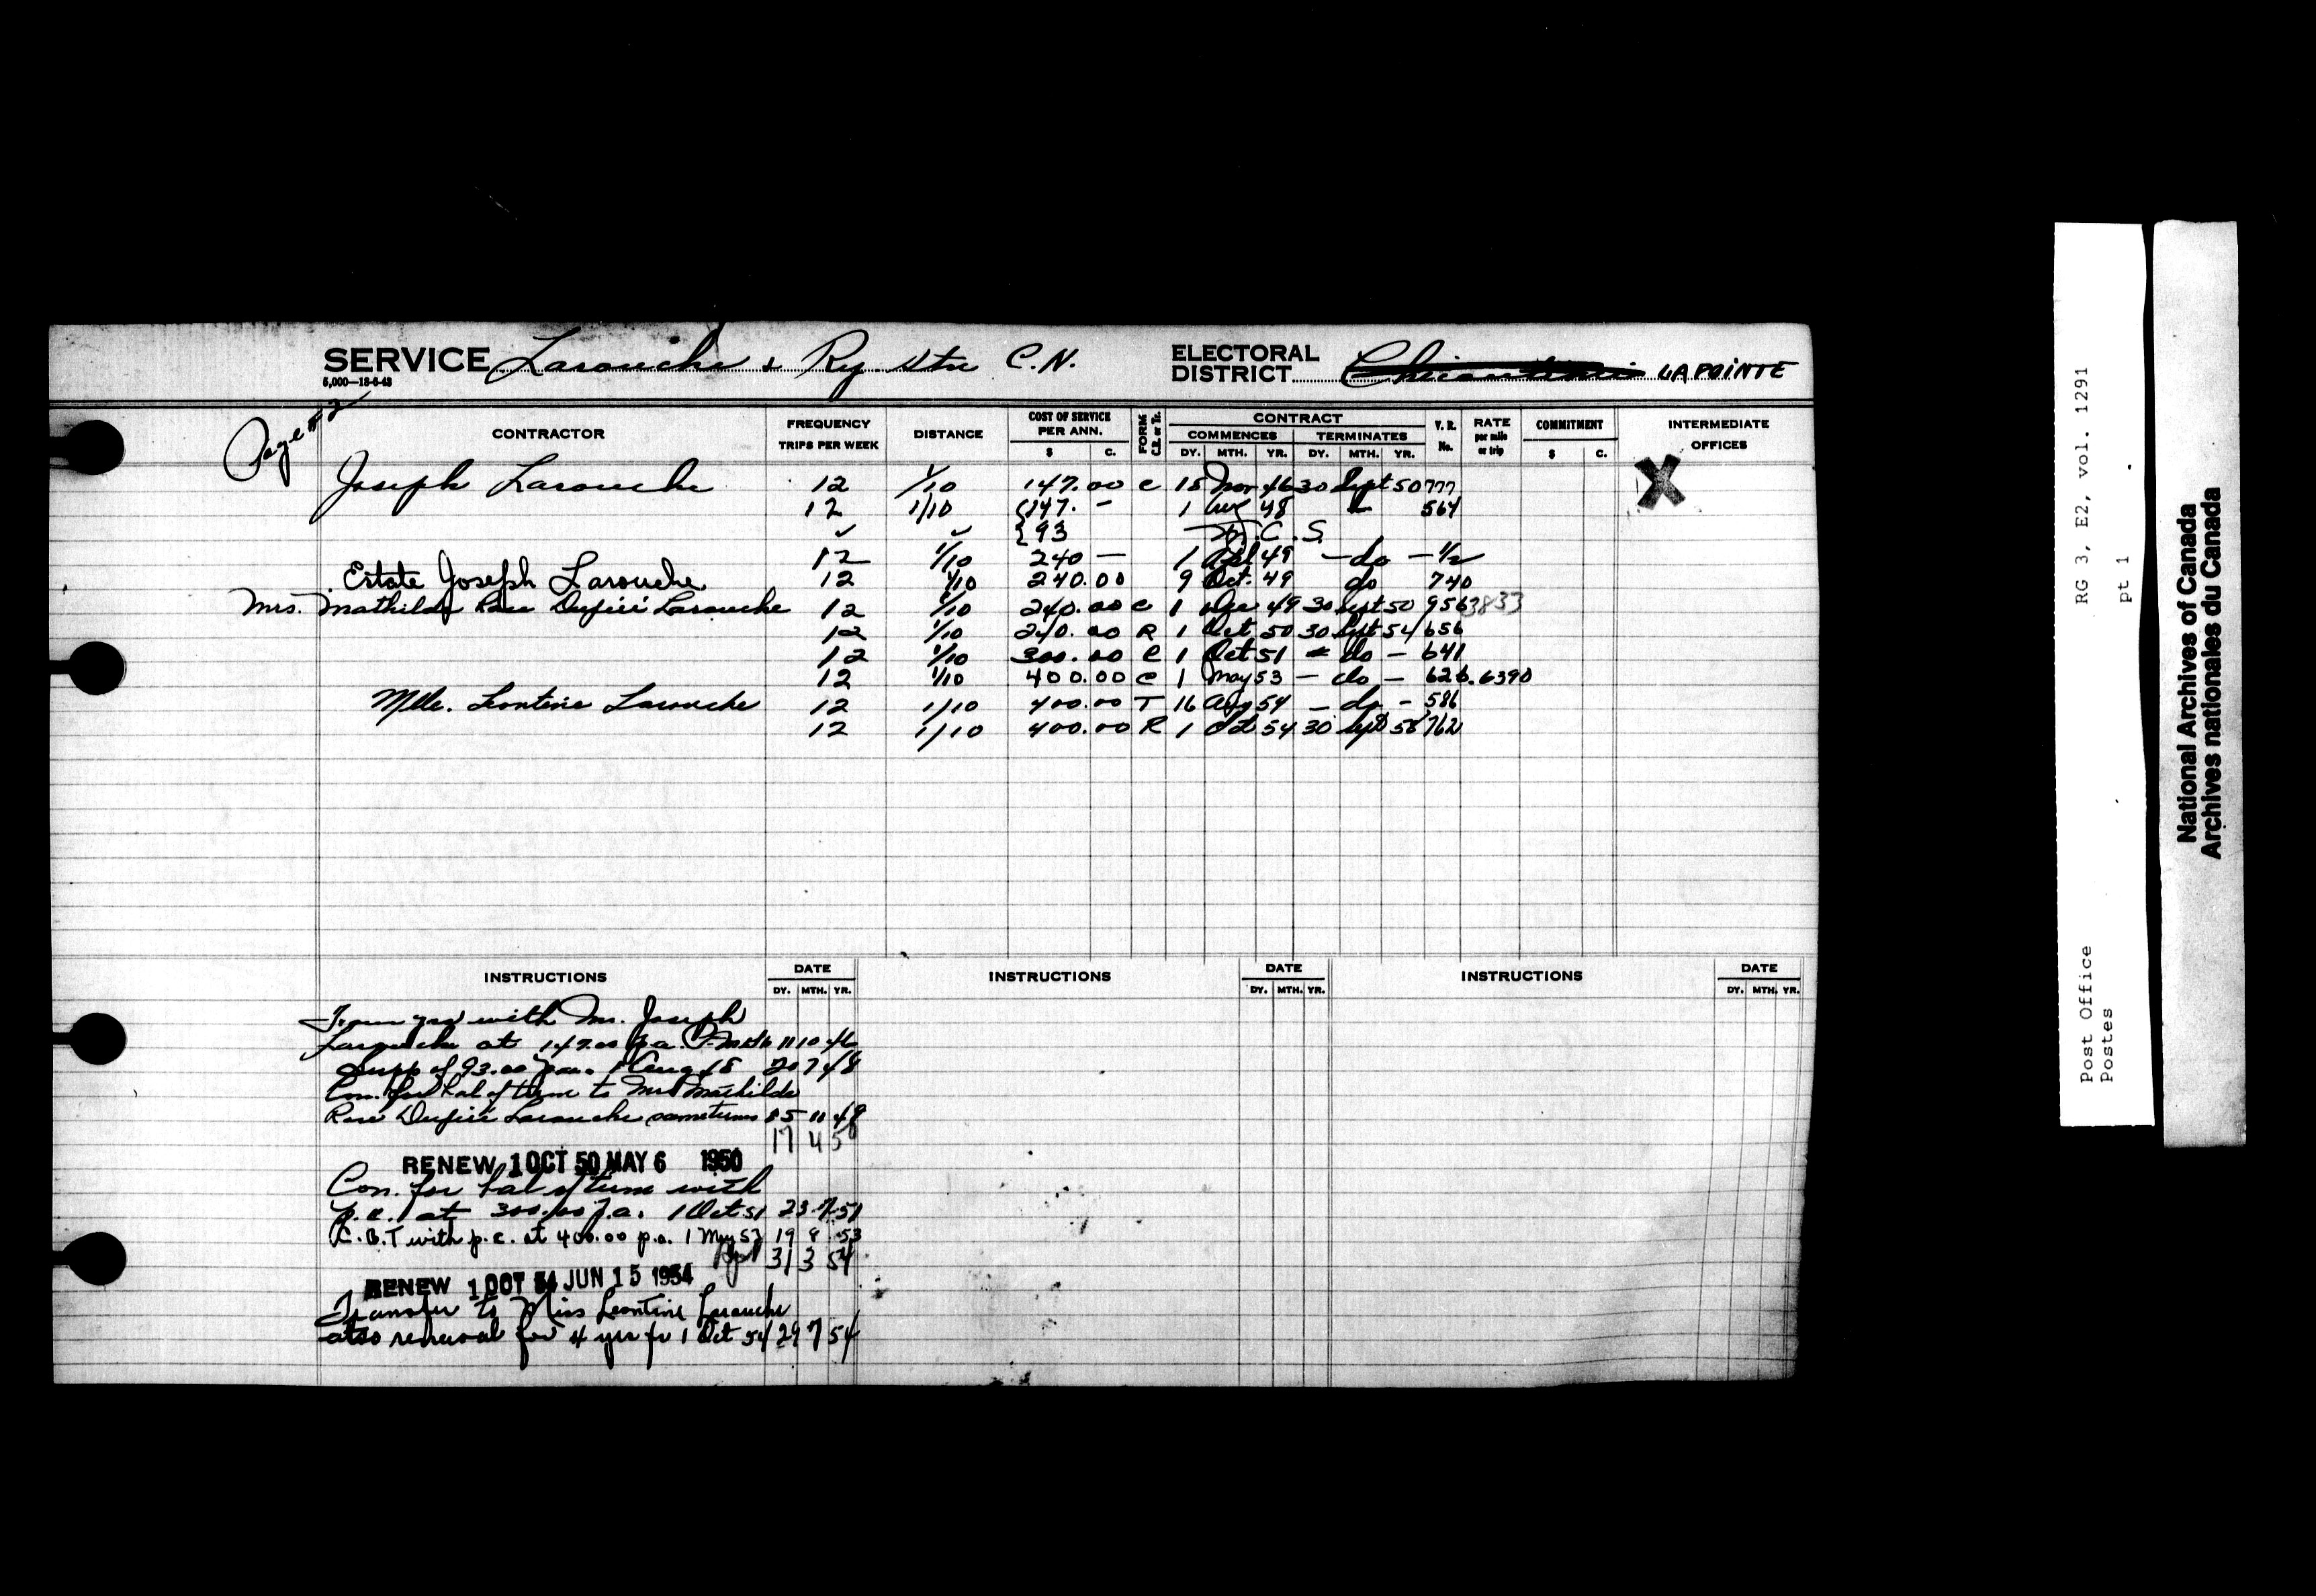 SERVICE Larouche & Ry. Stn C.N. ELECTORAL DISTRICT Chicoutimi LAPOINTE
5,000—18-6-43
Page #2
CONTRACTOR FREQUENCY TRIPS PER WEEK DISTANCE COST OF SERVICE PER ANN. $ C. FORM C.R. or Tr. CONTRACT COMMENCES DY. MTH. YR. TERMINATES DY. MTH. YR. V. R. No. RATE per mile or trip COMMITMENT $ C. INTERMEDIATE OFFICES
Joseph Larouche 12 1/10 147.00 C 15 Nov 46 30 Sept 50 777 X
12 1/10 147. — 1 Aug 48 564
✓ ✓ 93 C. S.
12 1/10 240 — 1 Apl 49 — do — 1/2
Estate Joseph Larouche 12 1/10 240.00 9 Oct. 49 do 740
Mrs. Mathilda Rose Larouche 12 1/10 240.00 C 1 Dec 49 30 Sept 50 956 3833
12 1/10 240.00 R 1 Oct 50 30 Sept 54 656
12 1/10 300.00 C 1 Oct 51 — do — 641
12 1/10 400.00 C 1 May 53 — do — 626. 6390
Mlle. Leontine Larouche 12 1/10 400.00 T 16 Aug 54 — do - 586
12 1/10 400.00 R 1 Oct 54 30 Sept 58 762
INSTRUCTIONS DATE DY. MTH. YR. INSTRUCTIONS DATE DY. MTH. YR. INSTRUCTIONS DATE DY. MTH. YR.
with Mr. Joseph
Larouche at 147.00 p.a. 11 10 46
Supp of 93.00 p.a. 1 Aug 48 20 7 48
Con. for bal of term to Mrs Mathilde
Rose Larouche same terms 15 11 49
17 4 5
RENEW 1 OCT 50 MAY 6 1950
Con. for bal of term with
p.c. at 300.00 p.a. 1 Oct 51 23 7 51
C.B.T with p.c. at 400.00 p.a. 1 May 53 19 8 53
31 3 54
RENEW 1 OCT 54 JUN 15 1954
Transfer to Miss Leontine Larouche
also renewal for 4 yrs fr 1 Oct 54 29 7 54
Post Office
Postes
RG 3, E2, vol. 1291
pt 1
National Archives of Canada
Archives nationales du Canada